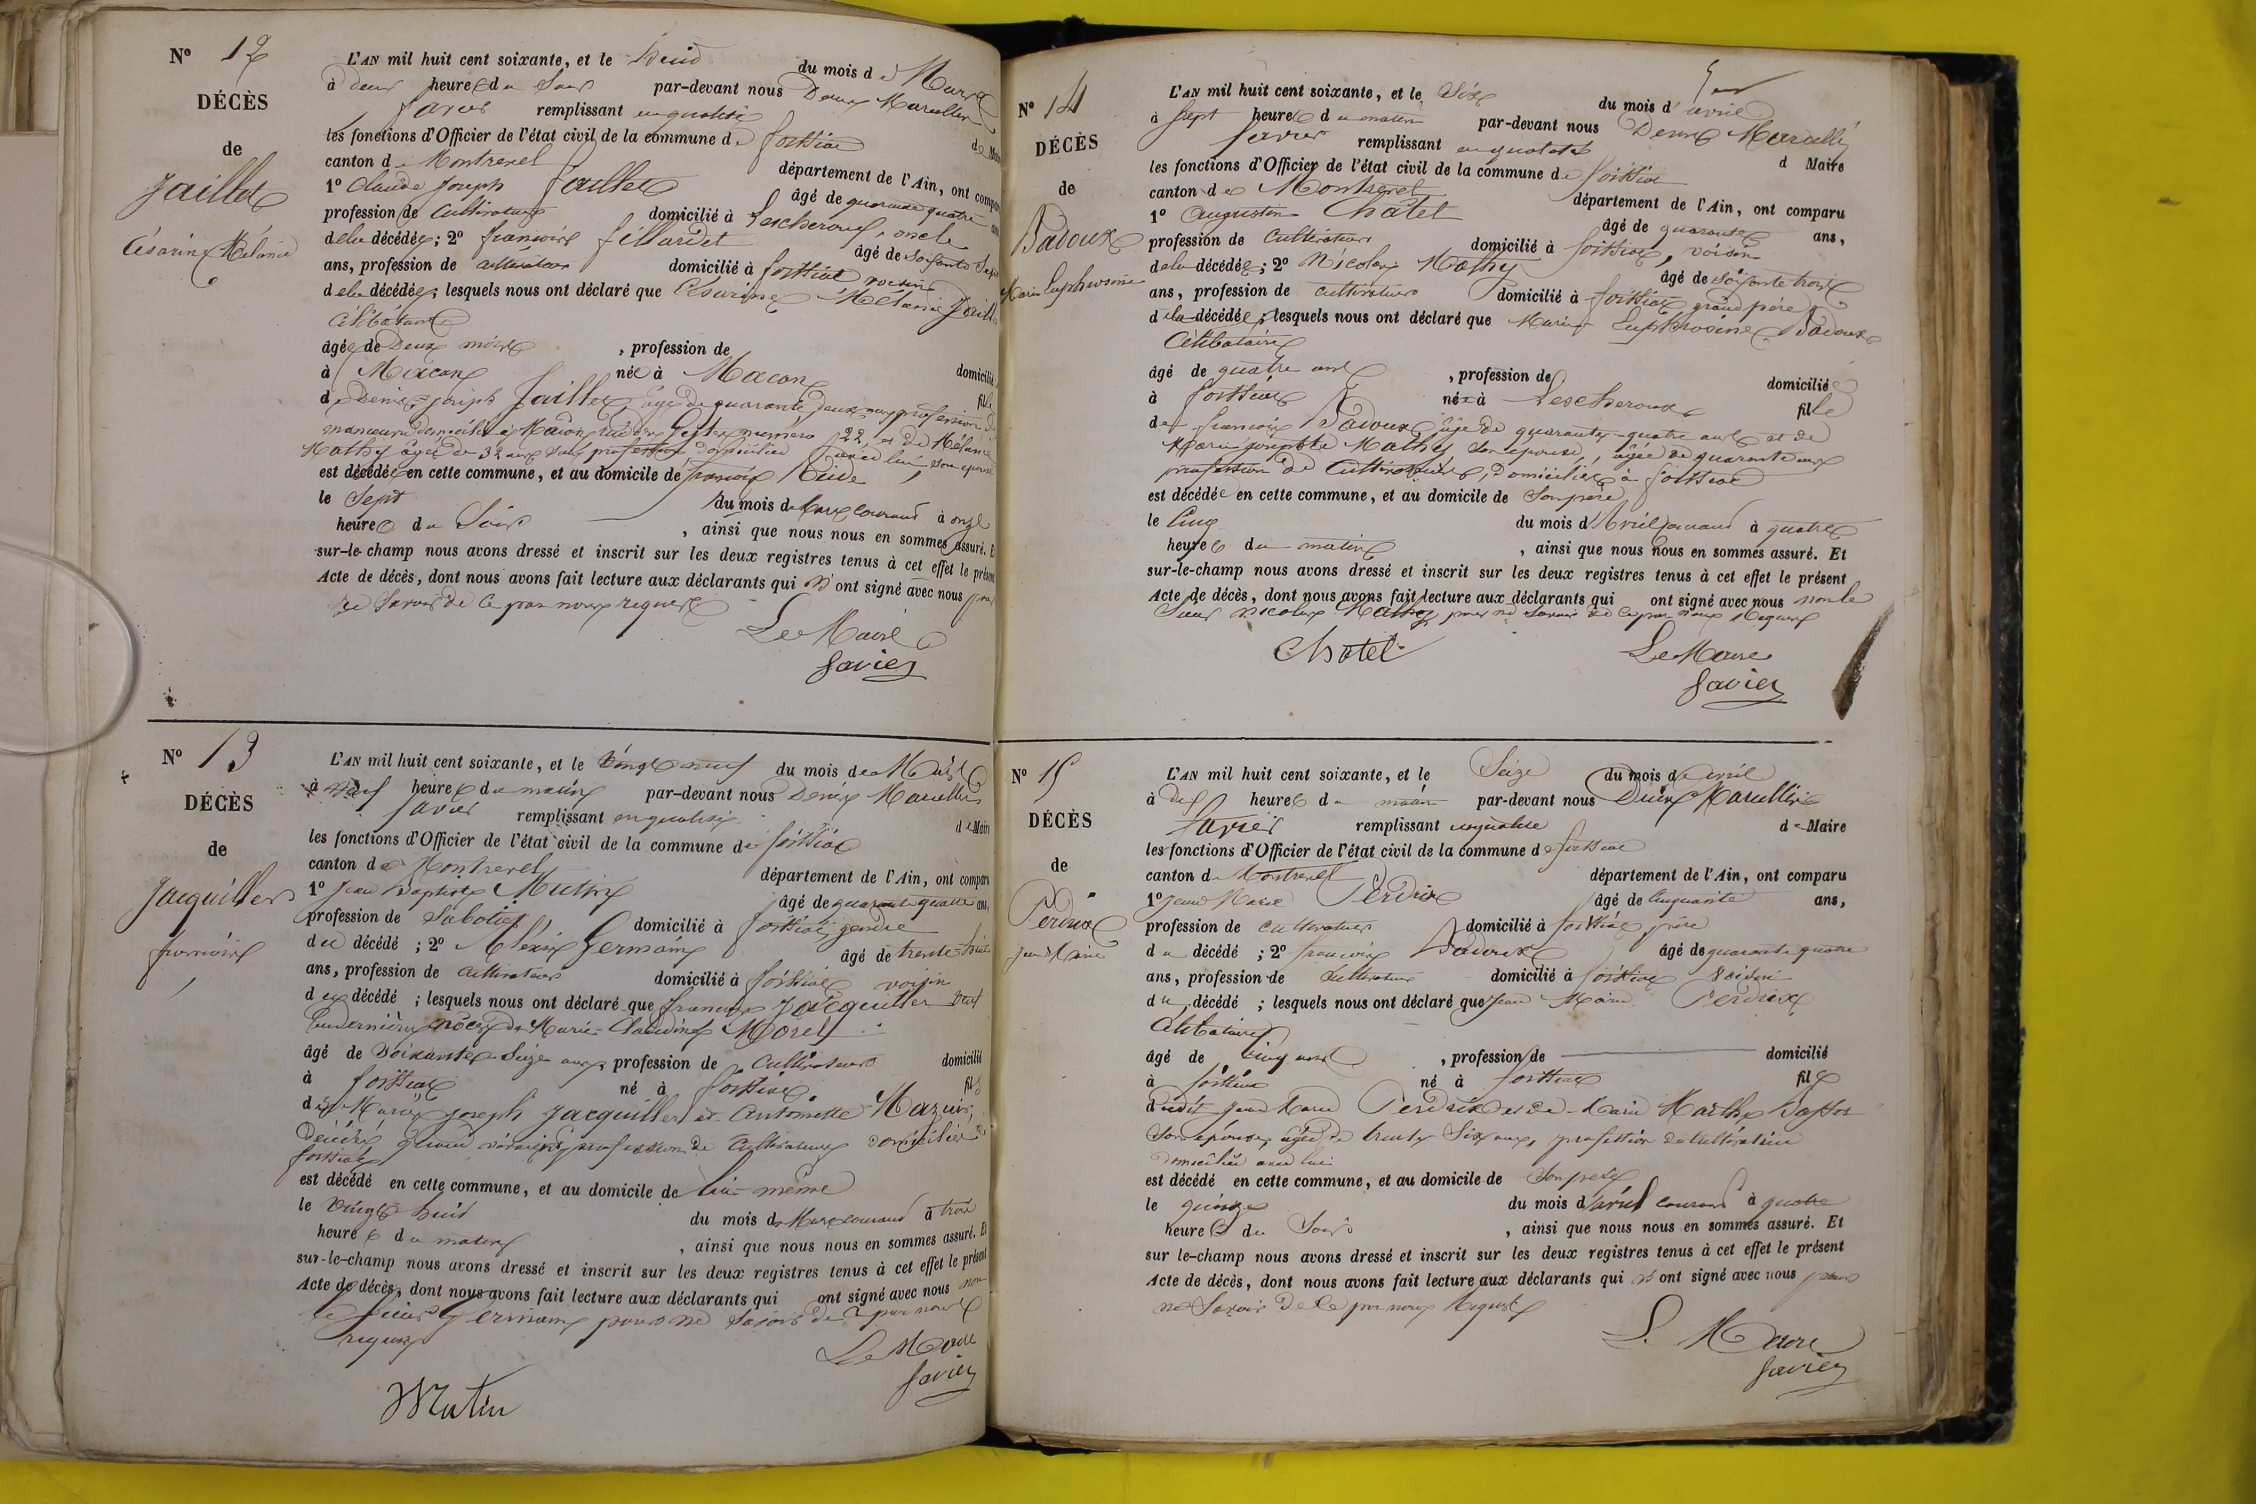 Nº 12
DÉCÈS
de
Jaillet
Césarine Mélanie
L'AN mil huit cent soixante, et le huit du mois de Mars
à deux heures du Soir par-devant nous Denis Marcellin
Favier remplissant en qualité de Maire
les fonctions d'Officier de l'état civil de la commune de foissiat
canton de Montrevel département de l'Ain, ont compar
1º Claude Joseph Jaillet âgé de quarante quatre ans
profession de Cultivateur domicilié à Lescheroux, oncle
de la décédée; 2º françois fillardet âgé de Soixante Sept
ans, profession de cultivateur domicilié à foissiat voisin
de la décédée; lesquels nous ont déclaré que Césarine Mélanie Jaillet
Célibataire
âgée de Deux mois , profession de
à Macon née à Macon domicilié
fille
de Denis joseph Jaillet, âgé de quarante deux ans, profession de
manoeuvre domicilié à Macon numéro 22, et de Mélanie
Mathy âgée de 32 ans sans profession domiciliée avec lui, son épouse
est décédée en cette commune, et au domicile de françois
le Sept du mois de Mars courant à onze
heures du Soir , ainsi que nous nous en sommes assuré. E
sur-le-champ nous avons dressé et inscrit sur les deux registres tenus à cet effet le présent
Acte de décès, dont nous avons fait lecture aux déclarants qui n'ont signé avec nous pour
ne Savoir de ce par nous requis
Le Maire
Favier
Nº 13
DÉCÈS
de
Jacquiller
françois
L'AN mil huit cent soixante, et le Vingt neuf du mois de Mars
à neuf heures du matin par-devant nous Denis Marcellin
Favier remplissant en qualité de Mair
les fonctions d'Officier de l'état civil de la commune de foissiat
canton de Montrevel département de l'Ain, ont compar
1º Jean Baptiste Mutin âgé de quarante quatre ans,
profession de Sabotier domicilié à foissiat gendre
du décédé ; 2º Alexis Germain âgé de trente-huit
ans, profession de Cultivateur domicilié à foissiat voisin
du décédé ; lesquels nous ont déclaré que françois Jacquiller veuf
en dernières nôces de Marie-Claudine Morel
âgé de Soixante-Seize ans, profession de Cultivateur domicilié
à foissiat né à foissiat fils
de Marie joseph Jacquiller et Antoinette Mazuir,
Décédés quand vivaient profession de Cultivateurs domiciliés à
foissiat
est décédé en cette commune, et au domicile de lui-même
le Vingt huit du mois de Mars courant à trois
heures du matin , ainsi que nous nous en sommes assuré. Et
sur-le-champ nous avons dressé et inscrit sur les deux registres tenus à cet effet le présent
Acte de décès, dont nous avons fait lecture aux déclarants qui ont signé avec nous non
le sieur Germain pour ne Savoir de ce par nous
requis
Le Maire
Favier
Mutin
Nº 14
DÉCÈS
de
Badoux
Marie Euphrosine
L'AN mil huit cent soixante, et le Six du mois d'avril
à Sept heures du matin par-devant nous Denis Marcellin
Favier remplissant en qualité d Maire
les fonctions d'Officier de l'état civil de la commune de foissiat
canton de Montrevel département de l'Ain, ont comparu
1º Augustin Châtel âgé de quarante ans,
profession de Cultivateur domicilié à foissiat, voisin
de la décédée; 2º Nicolas Mathy âgé de Soixante trois
ans, profession de cultivateur domicilié à foissiat grand père
de la décédée; lesquels nous ont déclaré que Marie Euphrosine Badoux
Célibataire
âgé de quatre ans , profession de domiciliée
à foissiat née à Lescheroux fille
de françois Badoux âgé de quarante-quatre ans et de
Marie josephte Mathy son épouse, âgée de quarante ans
profession de Cultivateurs, domiciliés à foissiat
est décédée en cette commune, et au domicile de Son père
le Cinq du mois d'Avril courant à quatre
heures du matin , ainsi que nous nous en sommes assuré. Et
sur-le-champ nous avons dressé et inscrit sur les deux registres tenus à cet effet le présent
Acte de décès, dont nous avons fait lecture aux déclarants qui ont signé avec nous non le
Sieur Nicolas Mathy pour ne Savoir de ce par nous Requis
Chatel
Le Maire
Favier
Nº 15
DÉCÈS
de
Perdrix
Jean Marie
L'AN mil huit cent soixante, et le Seize du mois d'avril
à dix heures du matin par-devant nous Denis Marcellin
Favier remplissant en qualité de Maire
les fonctions d'Officier de l'état civil de la commune de foissiat
canton de Montrevel département de l'Ain, ont comparu
1º Jean Marie Perdrix âgé de Cinquante ans,
profession de Cultivateur domicilié à foissiat père
du décédé ; 2º françois Badoux âgé de quarante quatre
ans, profession de Cultivateur domicilié à foissiat Voisin
du décédé ; lesquels nous ont déclaré que Jean Marie Perdrix
Célibataire
âgé de Cinq ans , profession de domicilié
à foissiat né à foissiat fils
dudit Jean Marie Perdrix et de Marie Marthe
Son épouse, âgée de trente Six ans, profession de Cultivatrice
domiciliée avec lui
est décédé en cette commune, et au domicile de Son père
le quinze du mois d'avril courant à quatre
heures du Soir , ainsi que nous nous en sommes assuré. Et
sur le-champ nous avons dressé et inscrit sur les deux registres tenus à cet effet le présent
Acte de décès, dont nous avons fait lecture aux déclarants qui n'ont signé avec nous pour
ne Savoir de ce par nous Requis
L. Maire
Favier